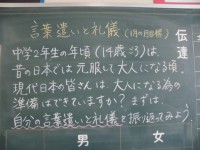 言葉遣いと礼儀(1月の月目標)
中学2年生の年頃(14歳ごろ)は、
昔の日本では元服して大人になる頃。
現代日本の皆さんは、大人になる為の
準備はできていますか?まずは、
自分の言葉遣いと礼儀を振り返ってみよう。
伝達
男 女